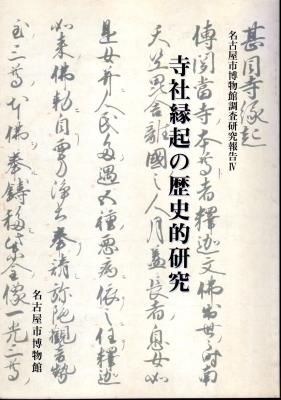 名古屋市博物館調査研究報告Ⅳ
寺社縁起の歴史的研究
名古屋市博物館
甚目寺縁起
傳聞當寺本尊者釋迦文佛出世之時南
天竺毘舎離國之人月蓋長者息女如
是女并人民多遇五種悪病依之任釋迦
如来佛勅自西方浄土奉請弥陀観音勢
至三尊
奉鋳移
金像一光三尊